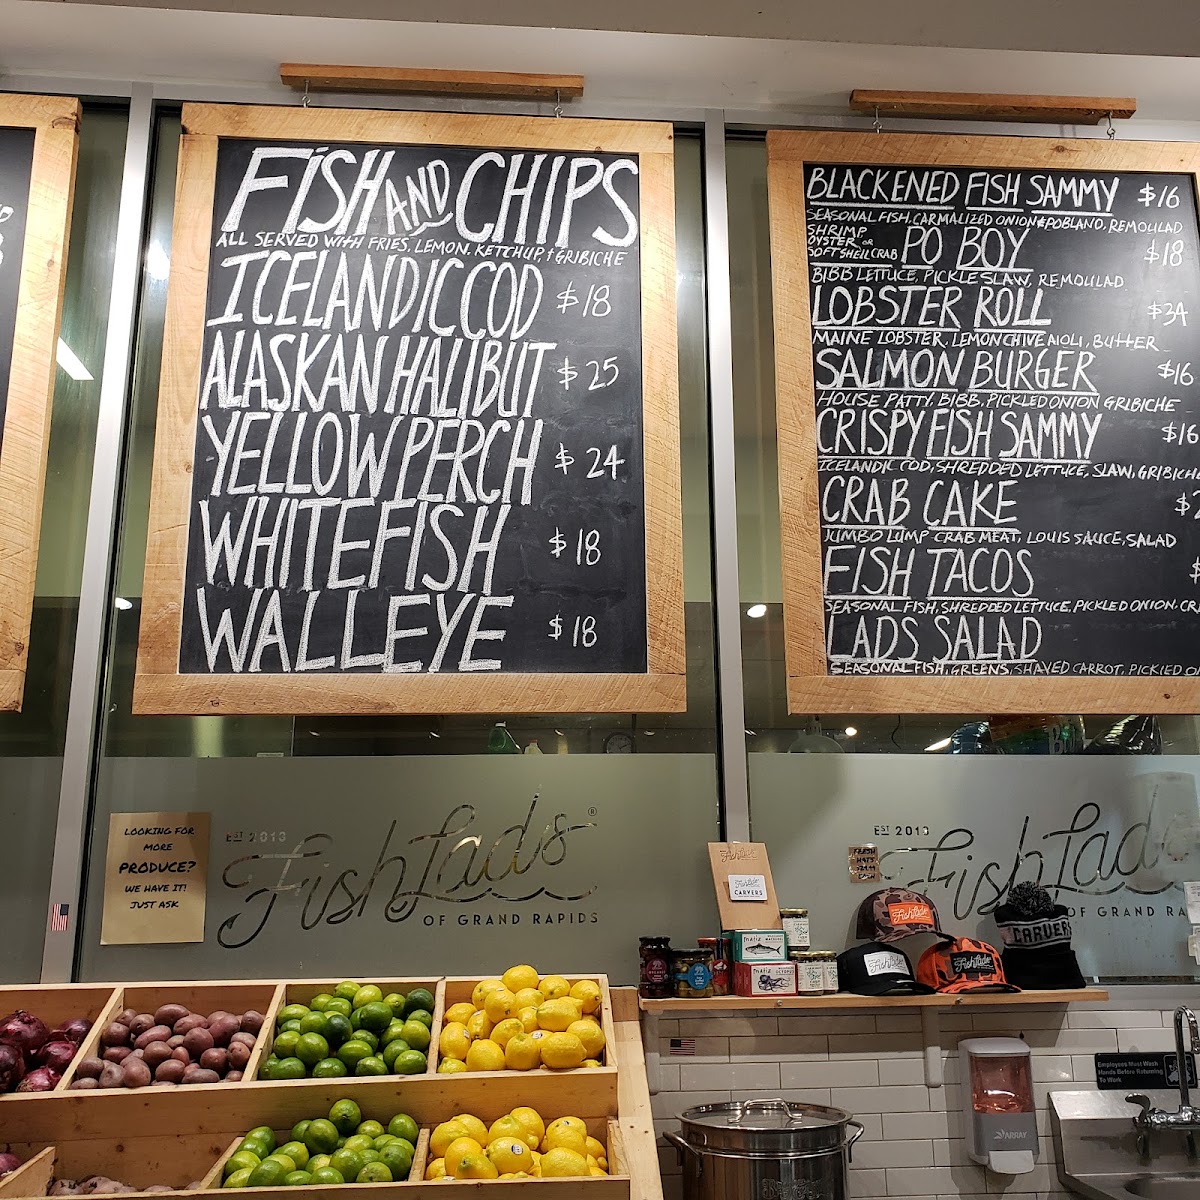 FISH AND CHIPS
ALL SERVED WITH FRIES, LEMON, KETCHUP, + GRIBICHE
ICELANDIC COD $18
ALASKAN HALIBUT $25
YELLOW PERCH $24
WHITEFISH $18
WALLEYE $18
BLACKENED FISH SAMMY $16
SEASONAL FISH, CARMALIZED ONION & POBLANO, REMOULAD
SHRIMP
OYSTER OR
SOFT SHELL CRAB PO BOY $18
BIBB LETTUCE, PICKLE SLAW, REMOULAD
LOBSTER ROLL $34
MAINE LOBSTER, LEMON CHIVE AIOLI, BUTTER
SALMON BURGER $16
HOUSE PATTY, BIBB, PICKLED ONION GRIBICHE
CRISPY FISH SAMMY $16
ICELANDIC COD, SHREDDED LETTUCE, SLAW, GRIBICHE
CRAB CAKE $
JUMBO LUMP CRAB MEAT, LOUIS SAUCE, SALAD
FISH TACOS
SEASONAL FISH, SHREDDED LETTUCE, PICKLED ONION, CR
LADS SALAD
SEASONAL FISH, GREENS, SHAVED CARROT, PICKLED
LOOKING FOR
MORE
PRODUCE?
WE HAVE IT!
JUST ASK
EST 2013
FishLads®
OF GRAND RAPIDS
EST 2013
FishLads
OF GRAND RA
FRESH
HATS
CASH
FishLads
CARVERS
matiz
matiz
FishLads
FishLads
FishLads
CARVERS
Employees Must Wash
Hands Before Returning
To Work
ARRAY